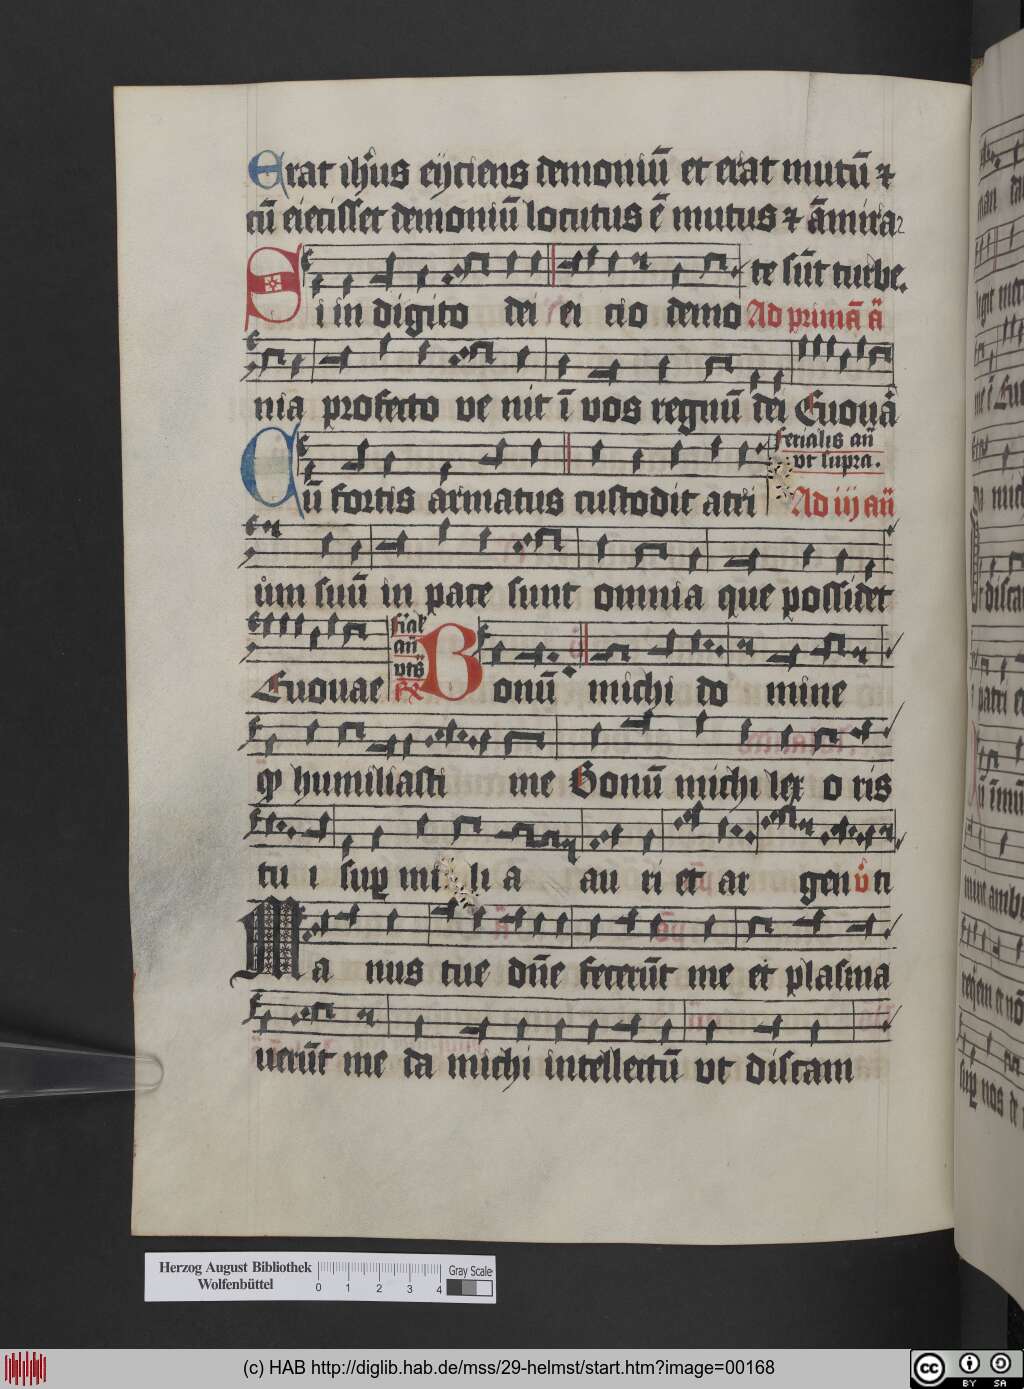 Erat ih̄us eijciens demoniū et erat mutū ⁊
cū eiecisset demoniū locutus ē mutus ⁊ āmira
te sūt turbe.
Si in digito dei ei cio demo Ad primā ā
nia profecto ve nit ī vos regnū dei Euouā
ferialis añ
vt supra.
Cū fortis armatus custodit atri Ad iij añ
um suū in pace sunt omnia que possidet
Euouae
añ
Bonū michi do mine
humiliasti me Bonū michi lex o ris
tu i suꝑ mi li a au ri et ar gen ti
Ma nus tue dn̄e fecerūt me et plasma
uerūt me da michi intellectū vt discam
Herzog August Bibliothek
Wolfenbüttel
0 1 2 3 4
Gray Scale
(c) HAB http://diglib.hab.de/mss/29-helmst/start.htm?image=00168
cc BY SA